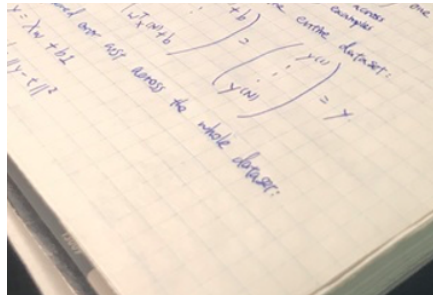 one
across
examples
the entire dataset:
+ b
wᵀx⁽ᴺ⁾ + b ) = ( y⁽¹⁾ ⋮ y⁽ᴺ⁾ ) = y
cost across the whole dataset:
y = Xw + b1
||y - t||²